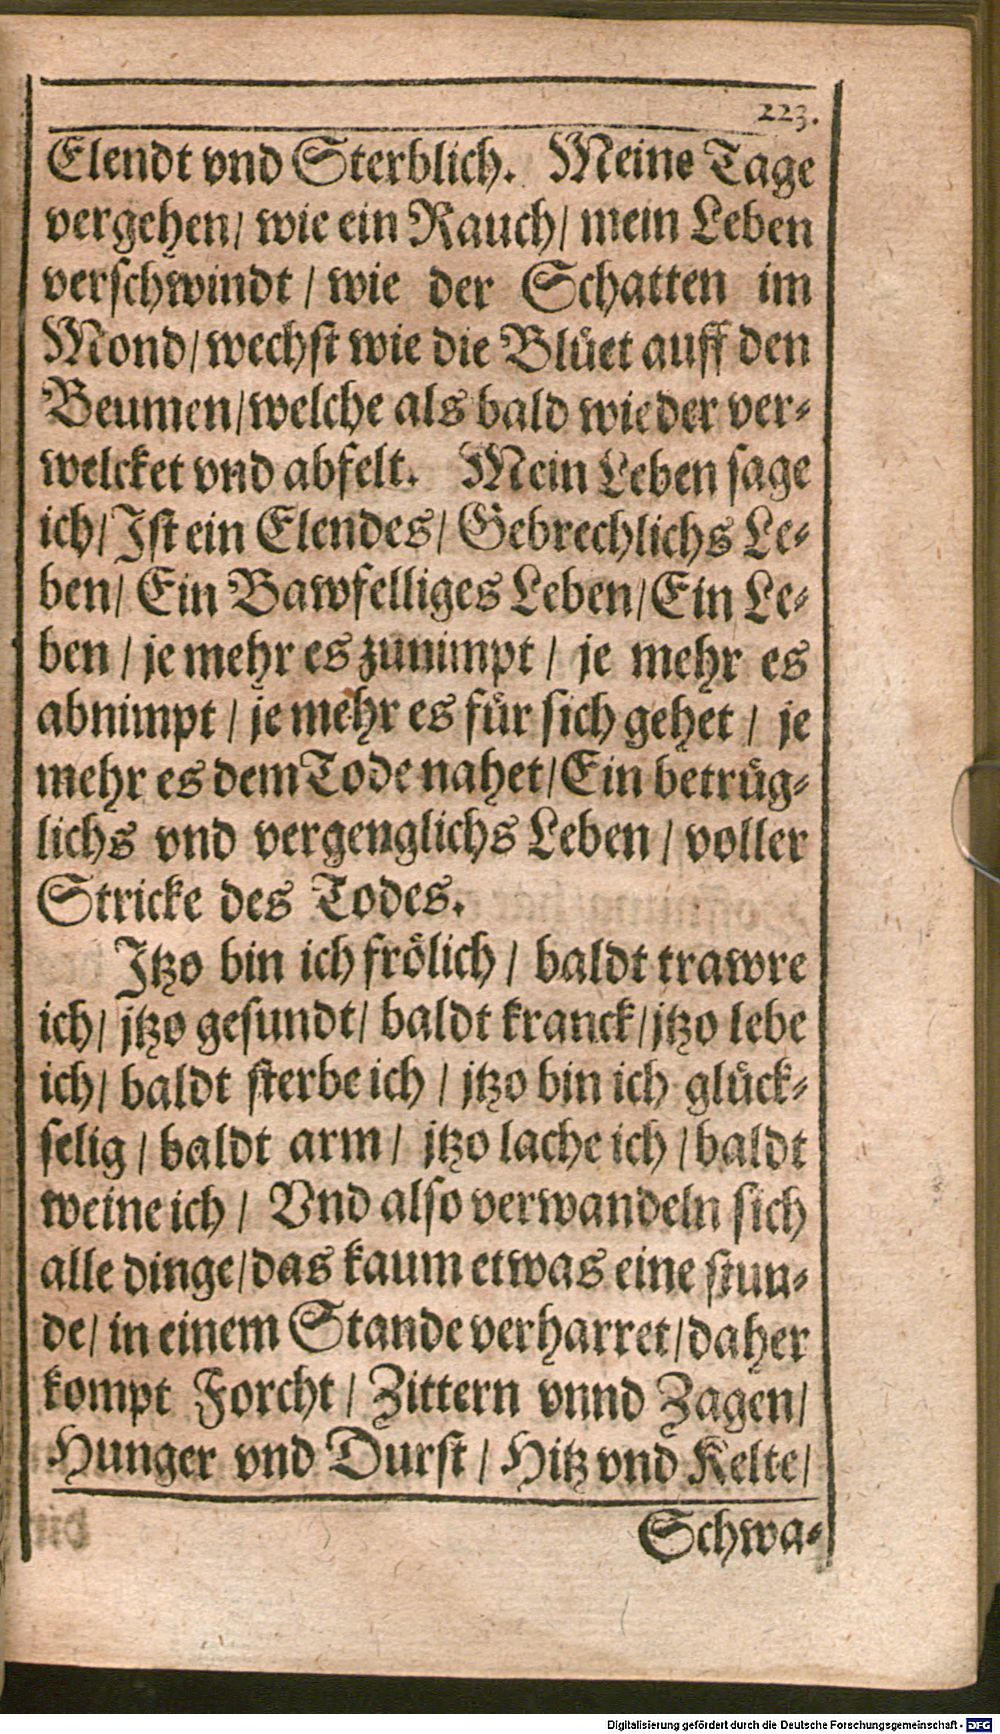 223.
Elendt vnd Sterblich. Meine Tage
vergehen/ wie ein Rauch/ mein Leben
verschwindt / wie der Schatten im
Mond/ wechst wie die Blüet auff den
Beumen/welche als bald wieder ver⸗
welcket vnd abfelt. Mein Leben sage
ich/ Ist ein Elendes/ Gebrechlichs Le⸗
ben/ Ein Bawfelliges Leben/Ein Le⸗
ben / je mehr es zunimpt / je mehr es
abnimpt / je mehr es für sich gehet / je
mehr es dem Tode nahet/Ein betrüg⸗
lichs vnd vergenglichs Leben / voller
Stricke des Todes.
Itzo bin ich frölich / baldt trawre
ich/ jtzo gesundt/ baldt kranck/jtzo lebe
ich/ baldt sterbe ich / jtzo bin ich glück⸗
selig / baldt arm / jtzo lache ich / baldt
weine ich / Vnd also verwandeln sich
alle dinge/das kaum etwas eine stun⸗
de/ in einem Stande verharret/daher
kompt Forcht / Zittern vnnd Zagen/
Hunger vnd Durst / Hitz vnd Kelte/
Schwa⸗
Digitalisierung gefördert durch die Deutsche Forschungsgemeinschaft - DFG